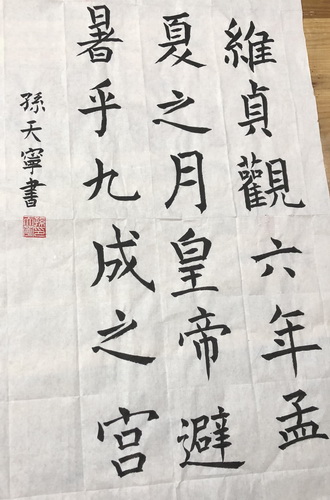 維貞觀六年孟
夏之月皇帝避
暑乎九成之宮
孫天寧書